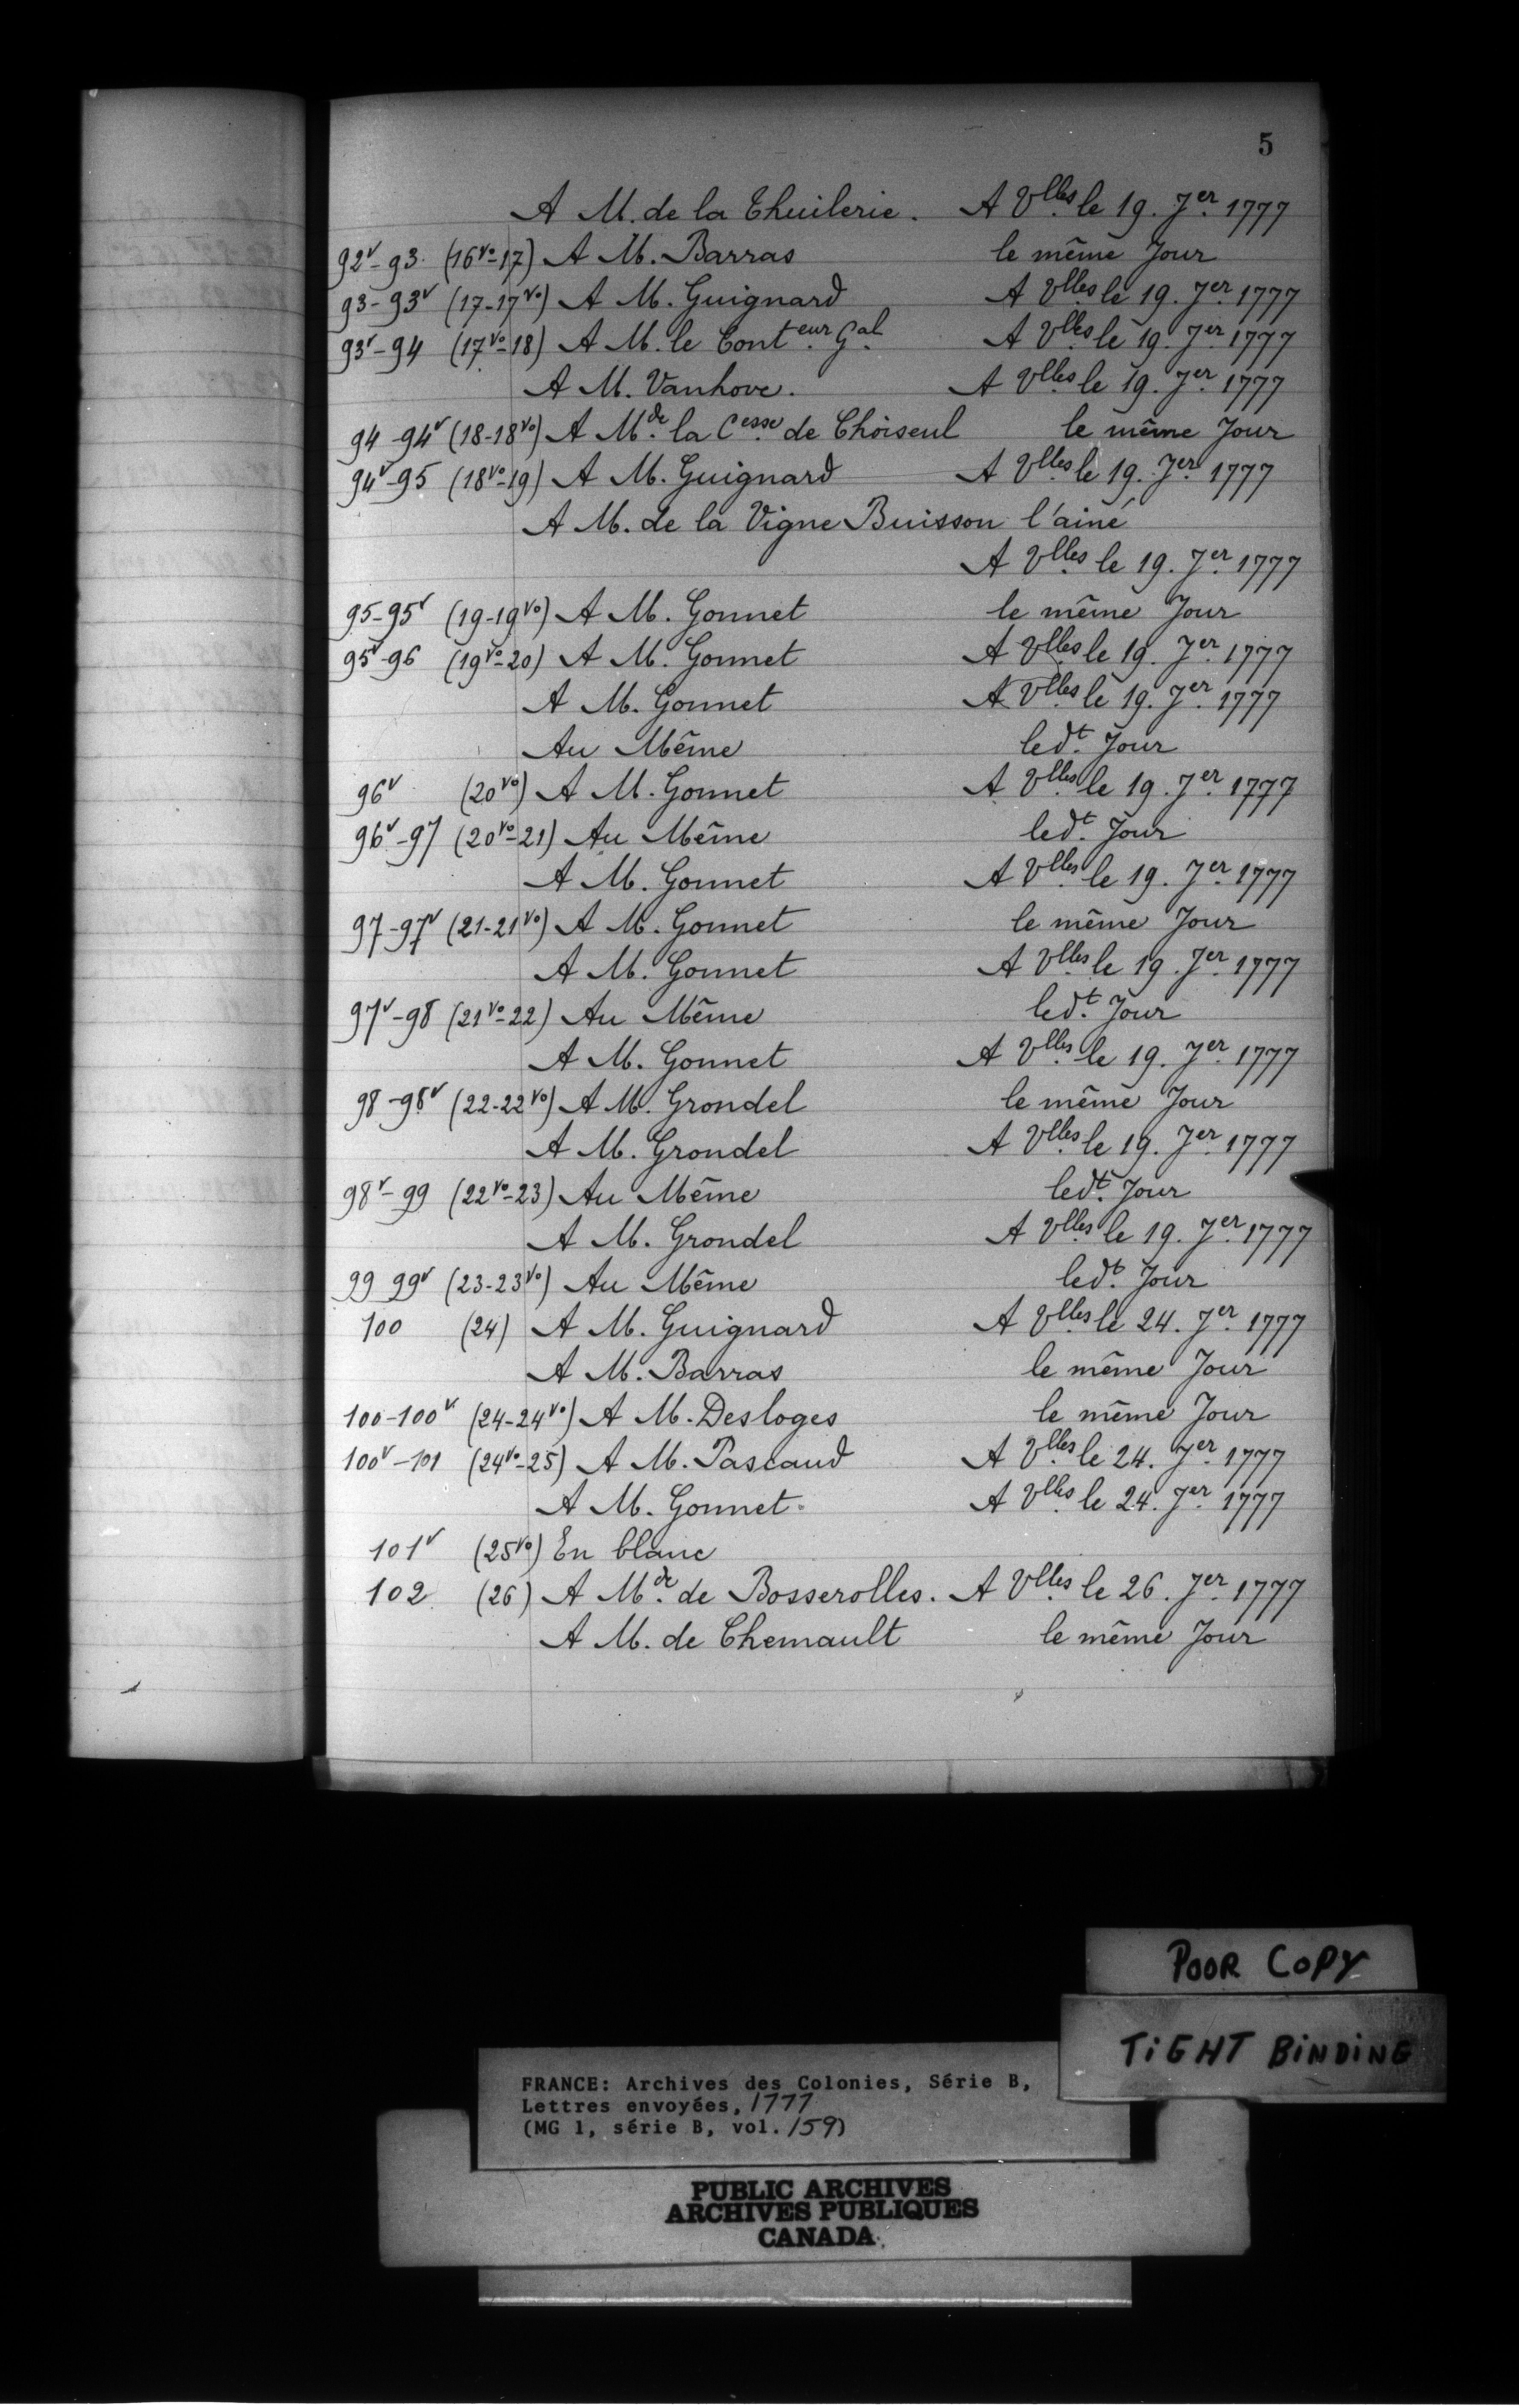 5
A M. de la Thuilerie. A Vlles le 19. Jer 1777
92v-93. (16vo-17) A M. Barras le même Jour
93-93v (17-17vo) A M. Guignard A Vlles le 19. Jer 1777
93v-94 (17vo-18) A M. le Conteur Gal A Vlles le 19. Jer 1777
A M. Vanhove. A Vlles le 19. Jer 1777
94-94v (18-18vo) A Mde la Cesse de Choiseul le même Jour
94v-95 (18vo-19) A M. Guignard A Vlles le 19. Jer 1777
A M. de la Vigne Buisson l'ainé
A Vlles le 19. Jer 1777
95-95v (19-19vo) A M. Gonnet le même Jour
95v-96 (19vo-20) A M. Gonnet A Vlles le 19. Jer 1777
A M. Gonnet A Vlles le 19. Jer 1777
Au Même ledt. Jour
96v (20vo) A M. Gonnet A Vlles le 19. Jer 1777
96v-97 (20vo-21) Au Même ledt. Jour
A M. Gonnet A Vlles le 19. Jer 1777
97-97v (21-21vo) A M. Gonnet le même Jour
A M. Gonnet A Vlles le 19. Jer 1777
97v-98 (21vo-22) Au Même ledt. Jour
A M. Gonnet A Vlles le 19. Jer 1777
98-98v (22-22vo) A M. Grondel le même Jour
A M. Grondel A Vlles le 19. Jer 1777
98v-99 (22vo-23) Au Même ledt. Jour
A M. Grondel A Vlles le 19. Jer 1777
99 99v (23-23vo) Au Même ledt. Jour
100 (24) A M. Guignard A Vlles le 24. Jer 1777
A M. Barras le même Jour
100-100v (24-24vo) A M. Desloges le même Jour
100v-101 (24vo-25) A M. Pascaud A Vlles le 24. Jer 1777
A M. Gonnet. A Vlles le 24. Jer 1777
101v (25vo) En blanc
102 (26) A Mde de Bosserolles. A Vlles le 26. Jer 1777
A M. de Chemault le même Jour
POOR COPY
TIGHT BINDING
FRANCE: Archives des Colonies, Série B,
Lettres envoyées, 1777
(MG 1, série B, vol. 159)
PUBLIC ARCHIVES
ARCHIVES PUBLIQUES
CANADA